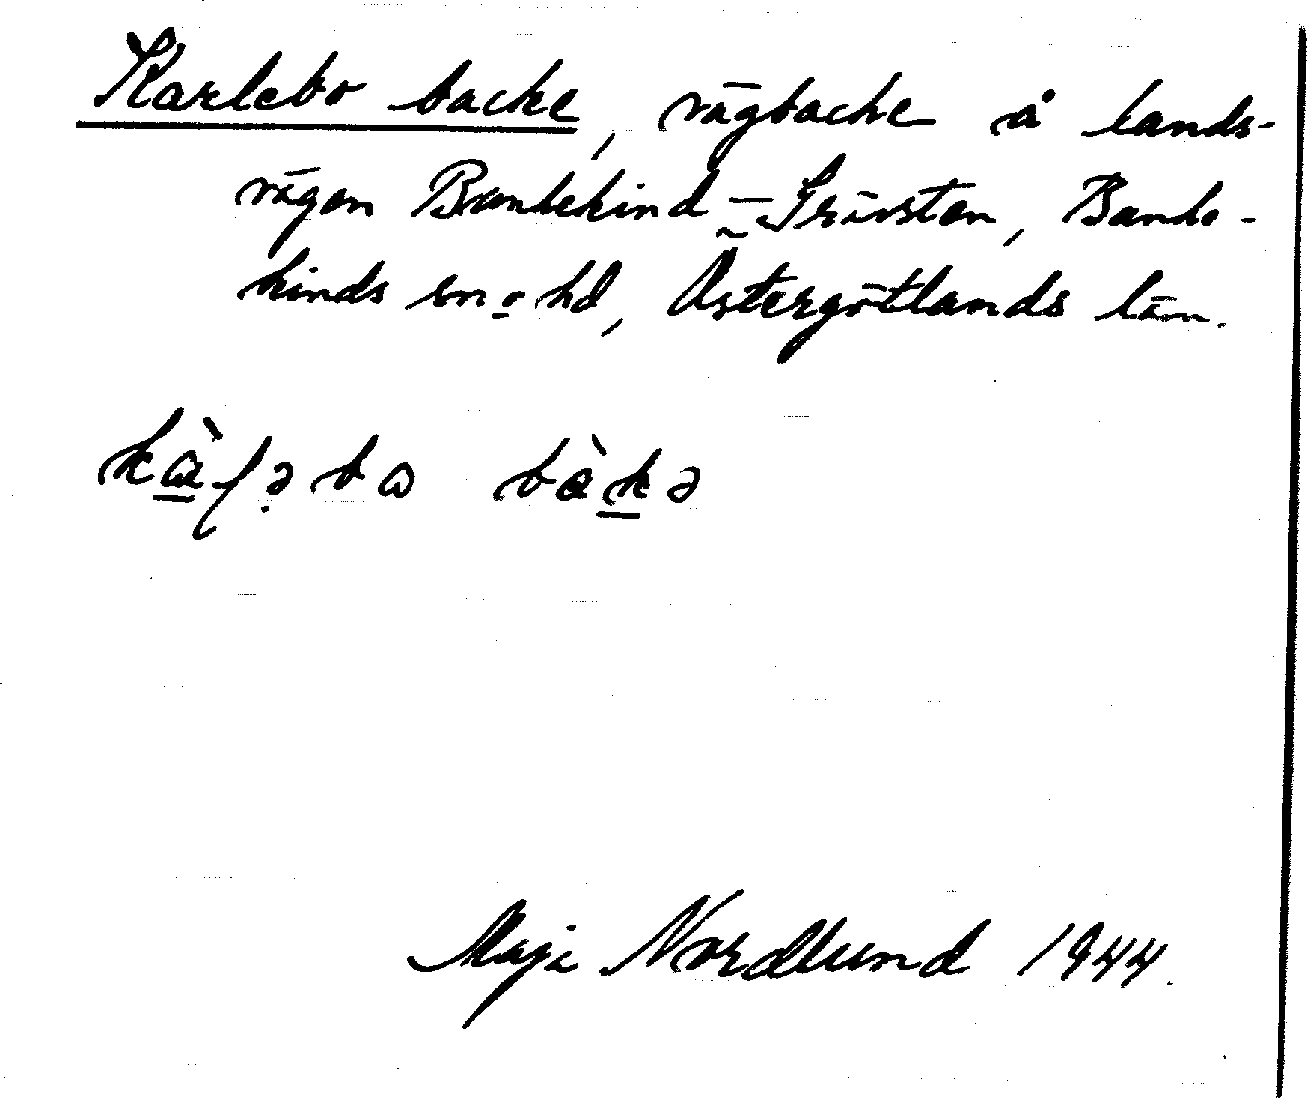 Karlebo backe, vägbacke å lands-
vägen Bankekind – Grävsten, Banke-
kinds sn o hd, Östergötlands län.
kàɭəbɷ bàkə
Maja Nordlund 1944.